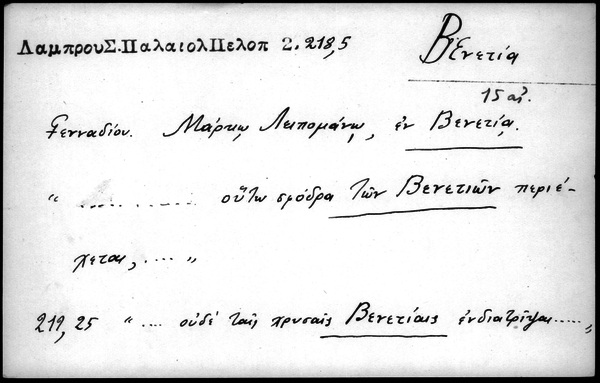 ΛαμπρουΣ.ΠαλαιολΠελοπ 2.218,5
Βενετία
15 αἰ.
Γενναδίου. Μάρκῳ Λειπομάνῳ, ἐν Βενετίᾳ.
“ ... ....... οὕτω σφόδρα τῶν Βενετιῶν περιέ-
χεται, .... „
219,25 “ .... οὐδὲ ταῖς χρυσαῖς Βενετίαις ἐνδιατρῖψαι ..... „